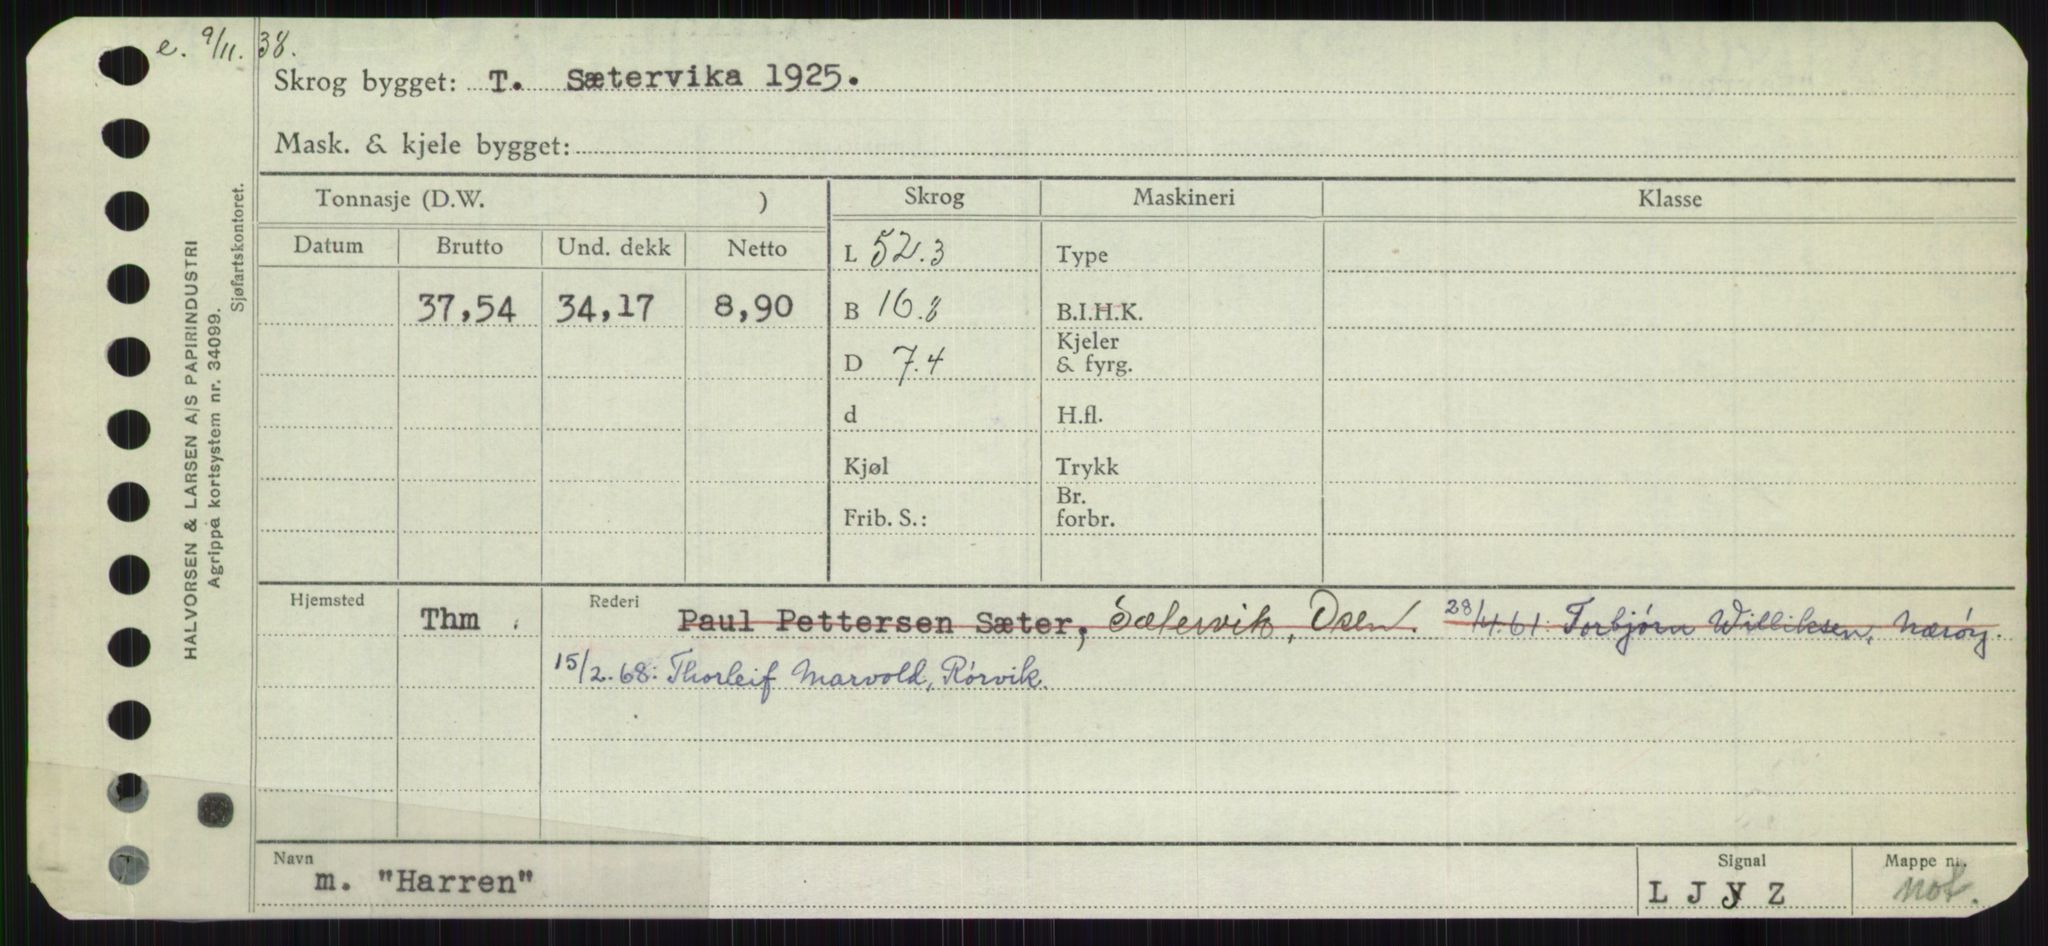 e. 9/11. 38.
Skrog bygget: T. Sætervika 1925.
Mask. & kjele bygget:
Tonnasje (D.W. ) Skrog Maskineri Klasse
Datum Brutto Und. dekk Netto
L 52.3 Type
37,54 34,17 8,90 B 16.8 B.I.H.K.
Kjeler
D 7.4 & fyrg.
d H.fl.
Kjøl Trykk
Br.
Frib. S.: forbr.
HALVORSEN & LARSEN A/S PAPIRINDUSTRI
Agrippa kortsystem nr. 34099.
Sjøfartskontoret.
Hjemsted Thm . Rederi Paul Pettersen Sæter, Sætervik, Osen. 28/4.61: Torbjørn Williksen, Nærøy.
15/2.68: Thorleif Marvold, Rørvik.
Navn Signal Mappe nr.
m. "Harren" L J Y Z mot.